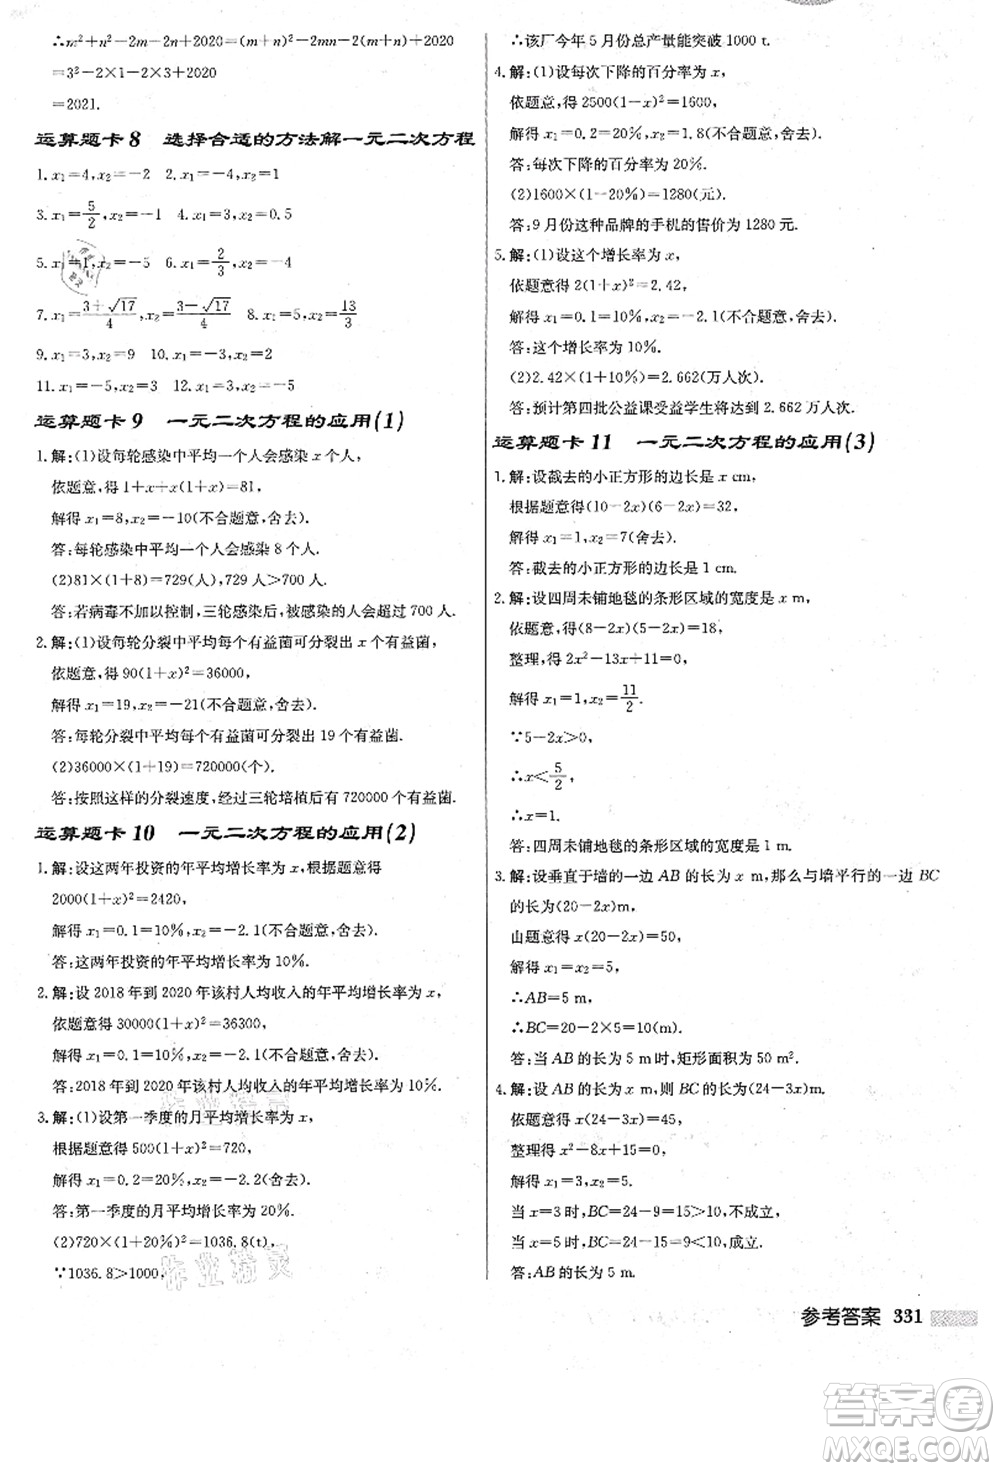 ∴m²+n²-2m-2n+2020=(m+n)²-2mn-2(m+n)+2020
=3²-2×1-2×3+2020
=2021.
运算题卡8 选择合适的方法解一元二次方程
1. x₁=4,x₂=-2 2. x₁=-4,x₂=1
3. x₁=5/2,x₂=-1 4. x₁=3,x₂=0.5
5. x₁=1,x₂=-5 6. x₁=2/3,x₂=-4
7. x₁=(3+√17)/4,x₂=(3-√17)/4 8. x₁=5,x₂=13/3
9. x₁=3,x₂=9 10. x₁=3,x₂=2
11. x₁=-5,x₂=3 12. x₁=3,x₂=-5
运算题卡9 一元二次方程的应用(1)
1. 解:(1)设每轮感染中平均一个人会感染 x 个人,
依题意,得 1+x+x(1+x)=81,
解得 x₁=8,x₂=-10(不合题意,舍去).
答:每轮感染中平均一个人会感染 8 个人.
(2)81×(1+8)=729(人),729 人>700 人.
答:若病毒不加以控制,三轮感染后,被感染的人会超过 700 人.
2. 解:(1)设每轮分裂中平均每个有益菌可分裂出 x 个有益菌,
依题意,得 90(1+x)²=36000,
解得 x₁=19,x₂=-21(不合题意,舍去).
答:每轮分裂中平均每个有益菌可分裂出 19 个有益菌.
(2)36000×(1+19)=720000(个).
答:按照这样的分裂速度,经过三轮培植后有 720000 个有益菌.
运算题卡10 一元二次方程的应用(2)
1. 解:设这两年投资的年平均增长率为 x,根据题意得
2000(1+x)²=2420,
解得 x₁=0.1=10%,x₂=-2.1(不合题意,舍去).
答:这两年投资的年平均增长率为 10%.
2. 解:设 2018 年到 2020 年该村人均收入的年平均增长率为 x,
依题意得 30000(1+x)²=36300,
解得 x₁=0.1=10%,x₂=-2.1(不合题意,舍去).
答:2018 年到 2020 年该村人均收入的年平均增长率为 10%.
3. 解:(1)设第一季度的月平均增长率为 x,
根据题意得 500(1+x)²=720,
解得 x₁=0.2=20%,x₂=-2.2(不合题意,舍去).
答:第一季度的月平均增长率为 20%.
(2)720×(1+20%)²=1036.8(t),
∵1036.8>1000,
∴该厂今年 5 月份总产量能突破 1000 t.
4. 解:(1)设每次下降的百分率为 x,
依题意,得 2500(1-x)²=1600,
解得 x₁=0.2=20%,x₂=1.8(不合题意,舍去).
答:每次下降的百分率为 20%.
(2)1600×(1-20%)=1280(元).
答:9 月份这种品牌的手机的售价为 1280 元.
5. 解:(1)设这个增长率为 x,
依题意,得 2(1+x)²=2.42,
解得 x₁=0.1=10%,x₂=-2.1(不合题意,舍去).
答:这个增长率为 10%.
(2)2.42×(1+10%)=2.662(万人次).
答:预计第四批公益课受益学生将达到 2.662 万人次.
运算题卡11 一元二次方程的应用(3)
1. 解:设截去的小正方形的边长是 x cm,
根据题意得(10-2x)(6-2x)=32,
解得 x₁=1,x₂=7(舍去).
答:截去的小正方形的边长是 1 cm.
2. 解:设四周未铺地毯的条形区域的宽度是 x m,
依题意,得(8-2x)(5-2x)=18,
整理,得 2x²-13x+11=0,
解得 x₁=1,x₂=11/2.
∵5-2x>0,
∴x<5/2,
∴x=1.
答:四周未铺地毯的条形区域的宽度是 1 m.
3. 解:设垂直于墙的一边 AB 的长为 x m,那么与墙平行的一边 BC
的长为(20-2x)m,
由题意得 x(20-2x)=50,
解得 x₁=x₂=5,
∴AB=5 m,
∴BC=20-2×5=10(m).
答:当 AB 的长为 5 m 时,矩形面积为 50 m².
4. 解:设 AB 的长为 x m,则 BC 的长为(24-3x)m,
依题意得 x(24-3x)=45,
整理得 x²-8x+15=0,
解得 x₁=3,x₂=5.
当 x=3 时,BC=24-9=15>10,不成立,
当 x=5 时,BC=24-15=9<10,成立.
答:AB 的长为 5 m.
作业精灵
作业精灵
参考答案 331
答案圈
MXQE.COM